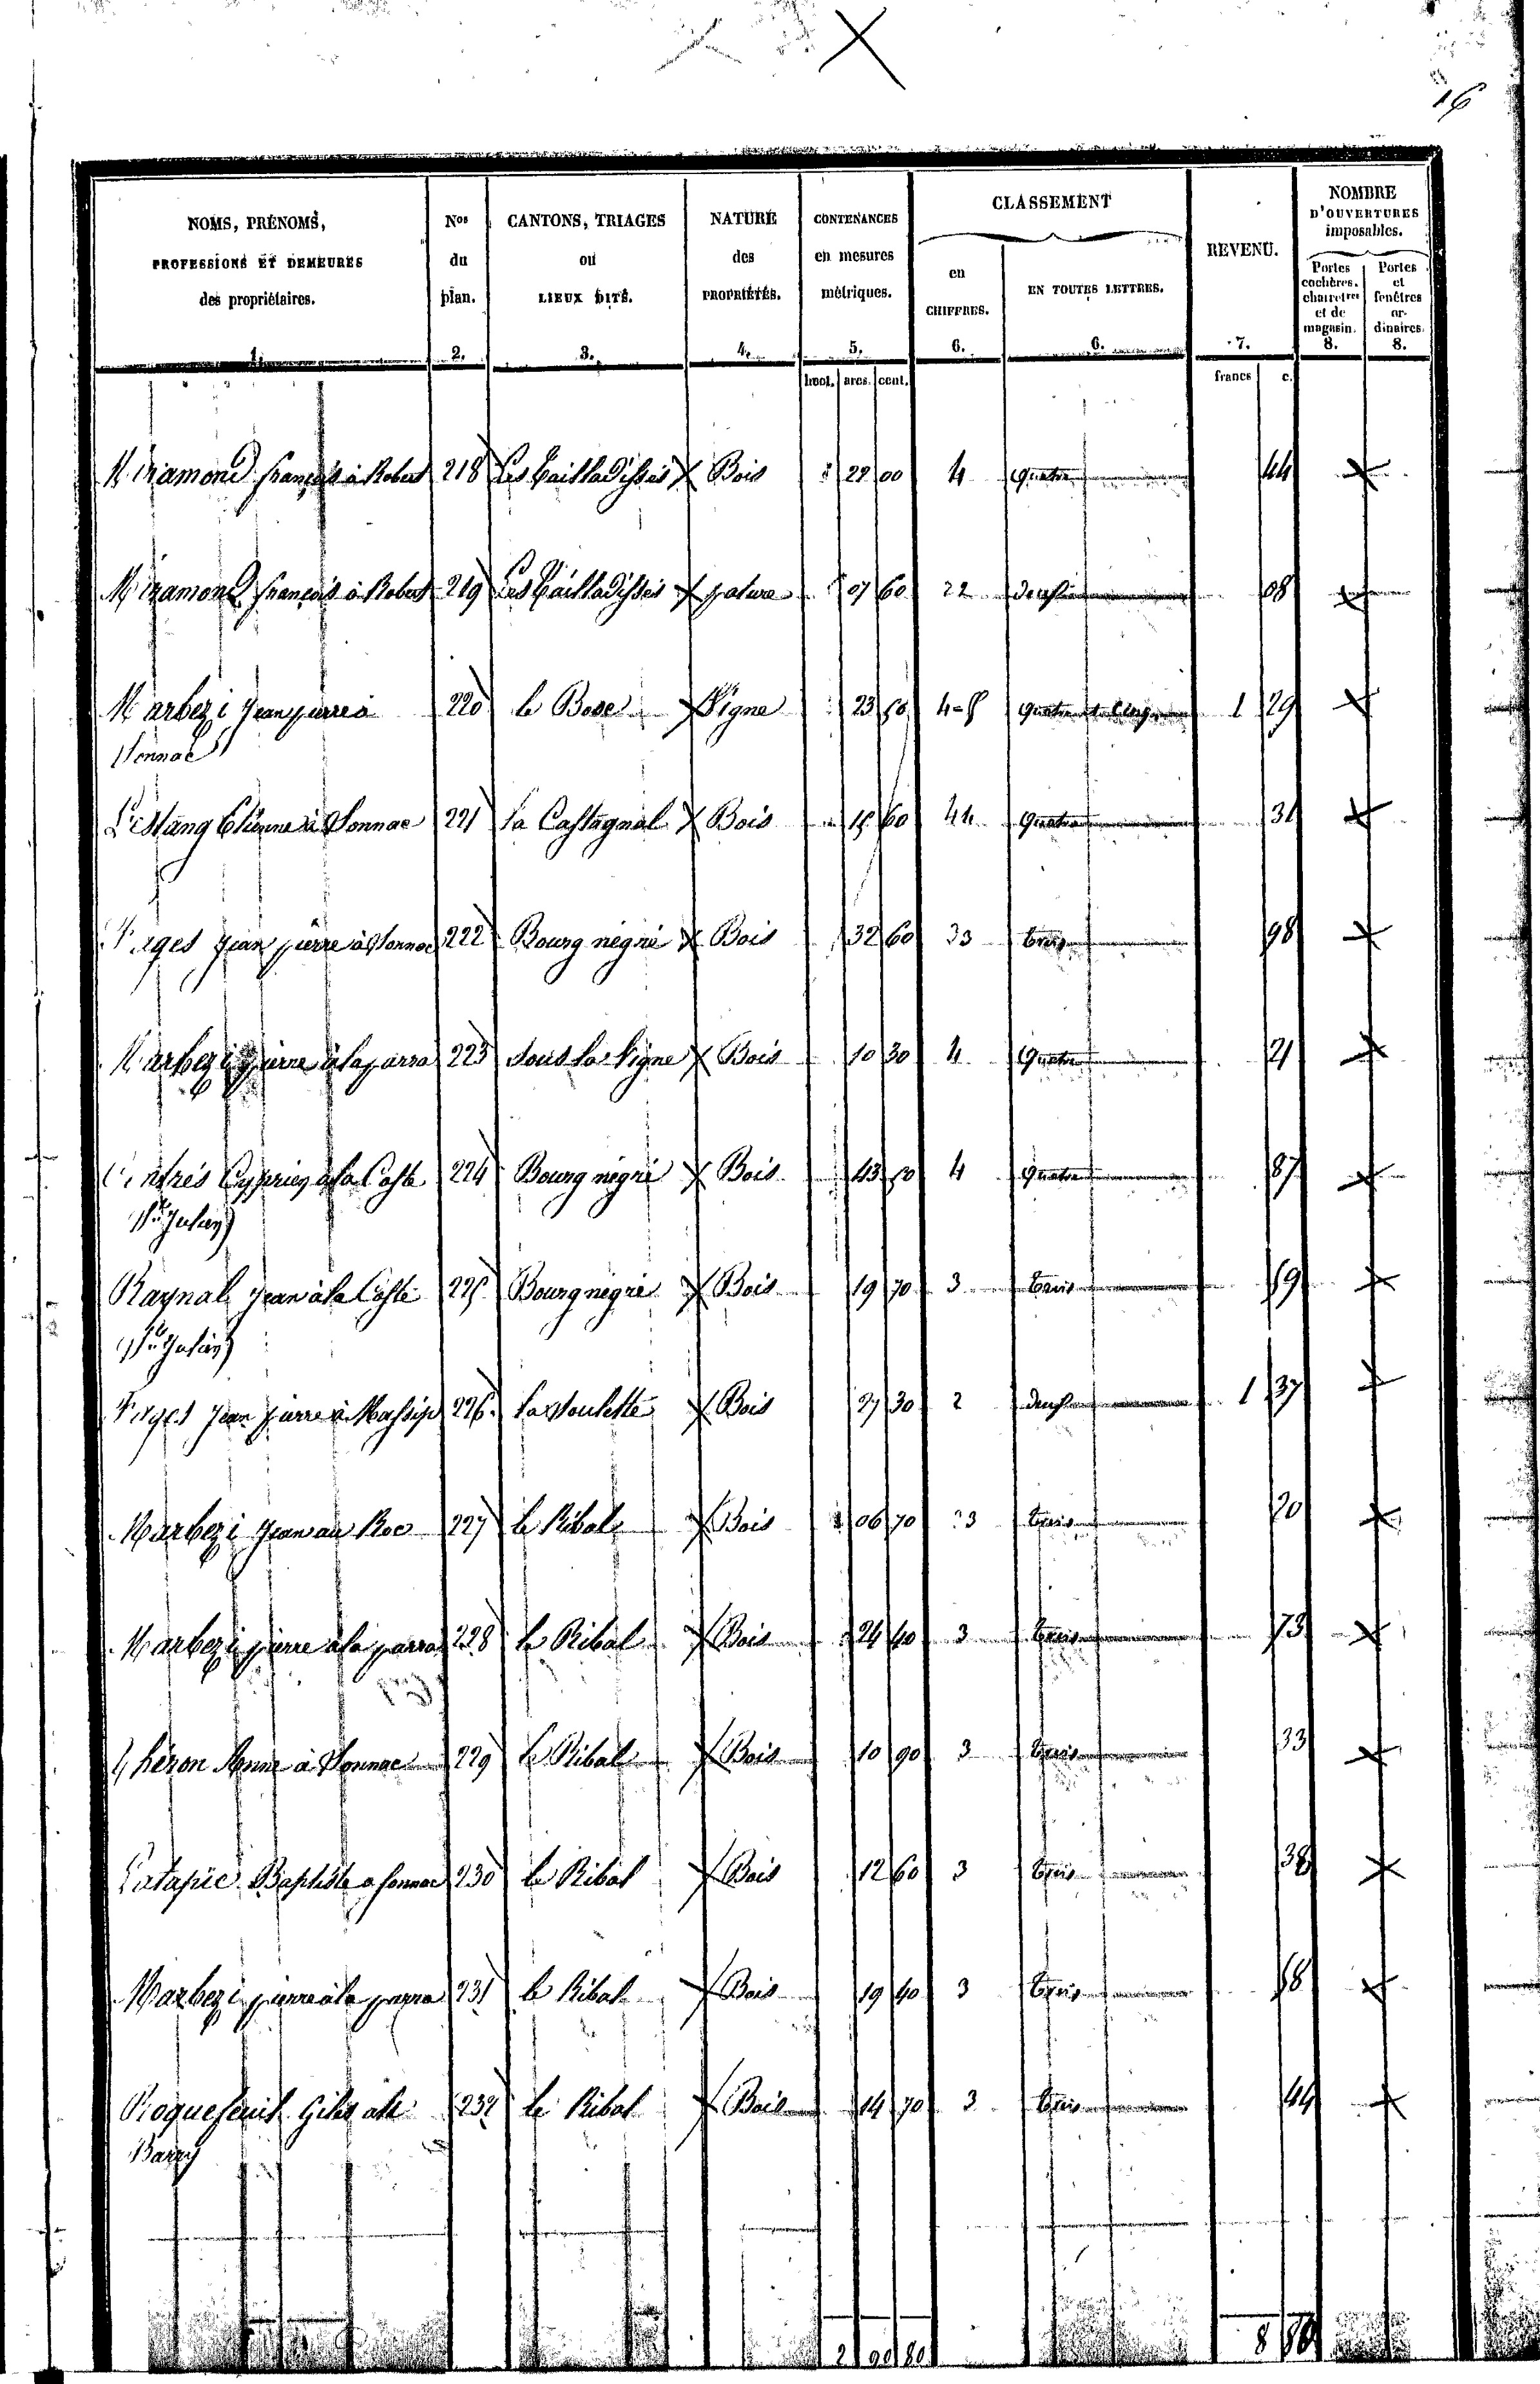 16
NOMS, PRÉNOMS, PROFESSIONS ET DEMEURES des propriétaires. 1.
Nos du plan. 2.
CANTONS, TRIAGES ou LIEUX DITS. 3.
NATURE des PROPRIÉTÉS. 4.
CONTENANCES en mesures métriques. 5.
CLASSEMENT
en CHIFFRES. 6.
EN TOUTES LETTRES. 6.
REVENU. 7.
NOMBRE D'OUVERTURES imposables.
Portes cochères, charretres et de magasin. 8.
Portes et fenêtres ordinaires. 8.
hect. ares. cent. francs c.
Miramond françois à Robert 218 Les Cailladisses Bois 22 00 4 Quatre 44
Miramond françois à Robert 219 Les Cailladisses pature 07 60 22 deux 08
Marbezi Jean pierre à 220 le Bosc Vigne 23 50 4-5 Quatre et Cinq 1 29
Sonnac
Lestang Etienne à Sonnac 221 la Castagnal Bois 15 60 44 Quatre 31
Pages Jean pierre à Sonnac 222 Bourg négrié Bois 32 60 33 trois 98
Marbezi pierre à la parra 223 Sous la Vigne Bois 10 30 4 Quatre 21
Cyprien à la Coste 224 Bourg négrié Bois 43 50 4 Quatre 87
St. Julien
Raynal Jean à la Coste 225 Bourg négrié Bois 19 70 3 trois 59
St. Julien
Pages Jean pierre à Massip 226 la Soulette Bois 27 30 2 deux 1 37
Marbezi Jean au Roc 227 le Ribal Bois 06 70 3 trois 20
Marbezi pierre à la parra 228 le Ribal Bois 24 40 3 trois 73
Théron Anne à Sonnac 229 le Ribal Bois 10 90 3 trois 33
Latapie Baptiste a Sonnac 230 le Ribal Bois 12 60 3 trois 38
Marbezi pierre à la parra 231 le Ribal Bois 19 40 3 trois 58
Roquefeuil 232 le Ribal Bois 14 70 3 trois 44
Barry
2 90 80 8 80